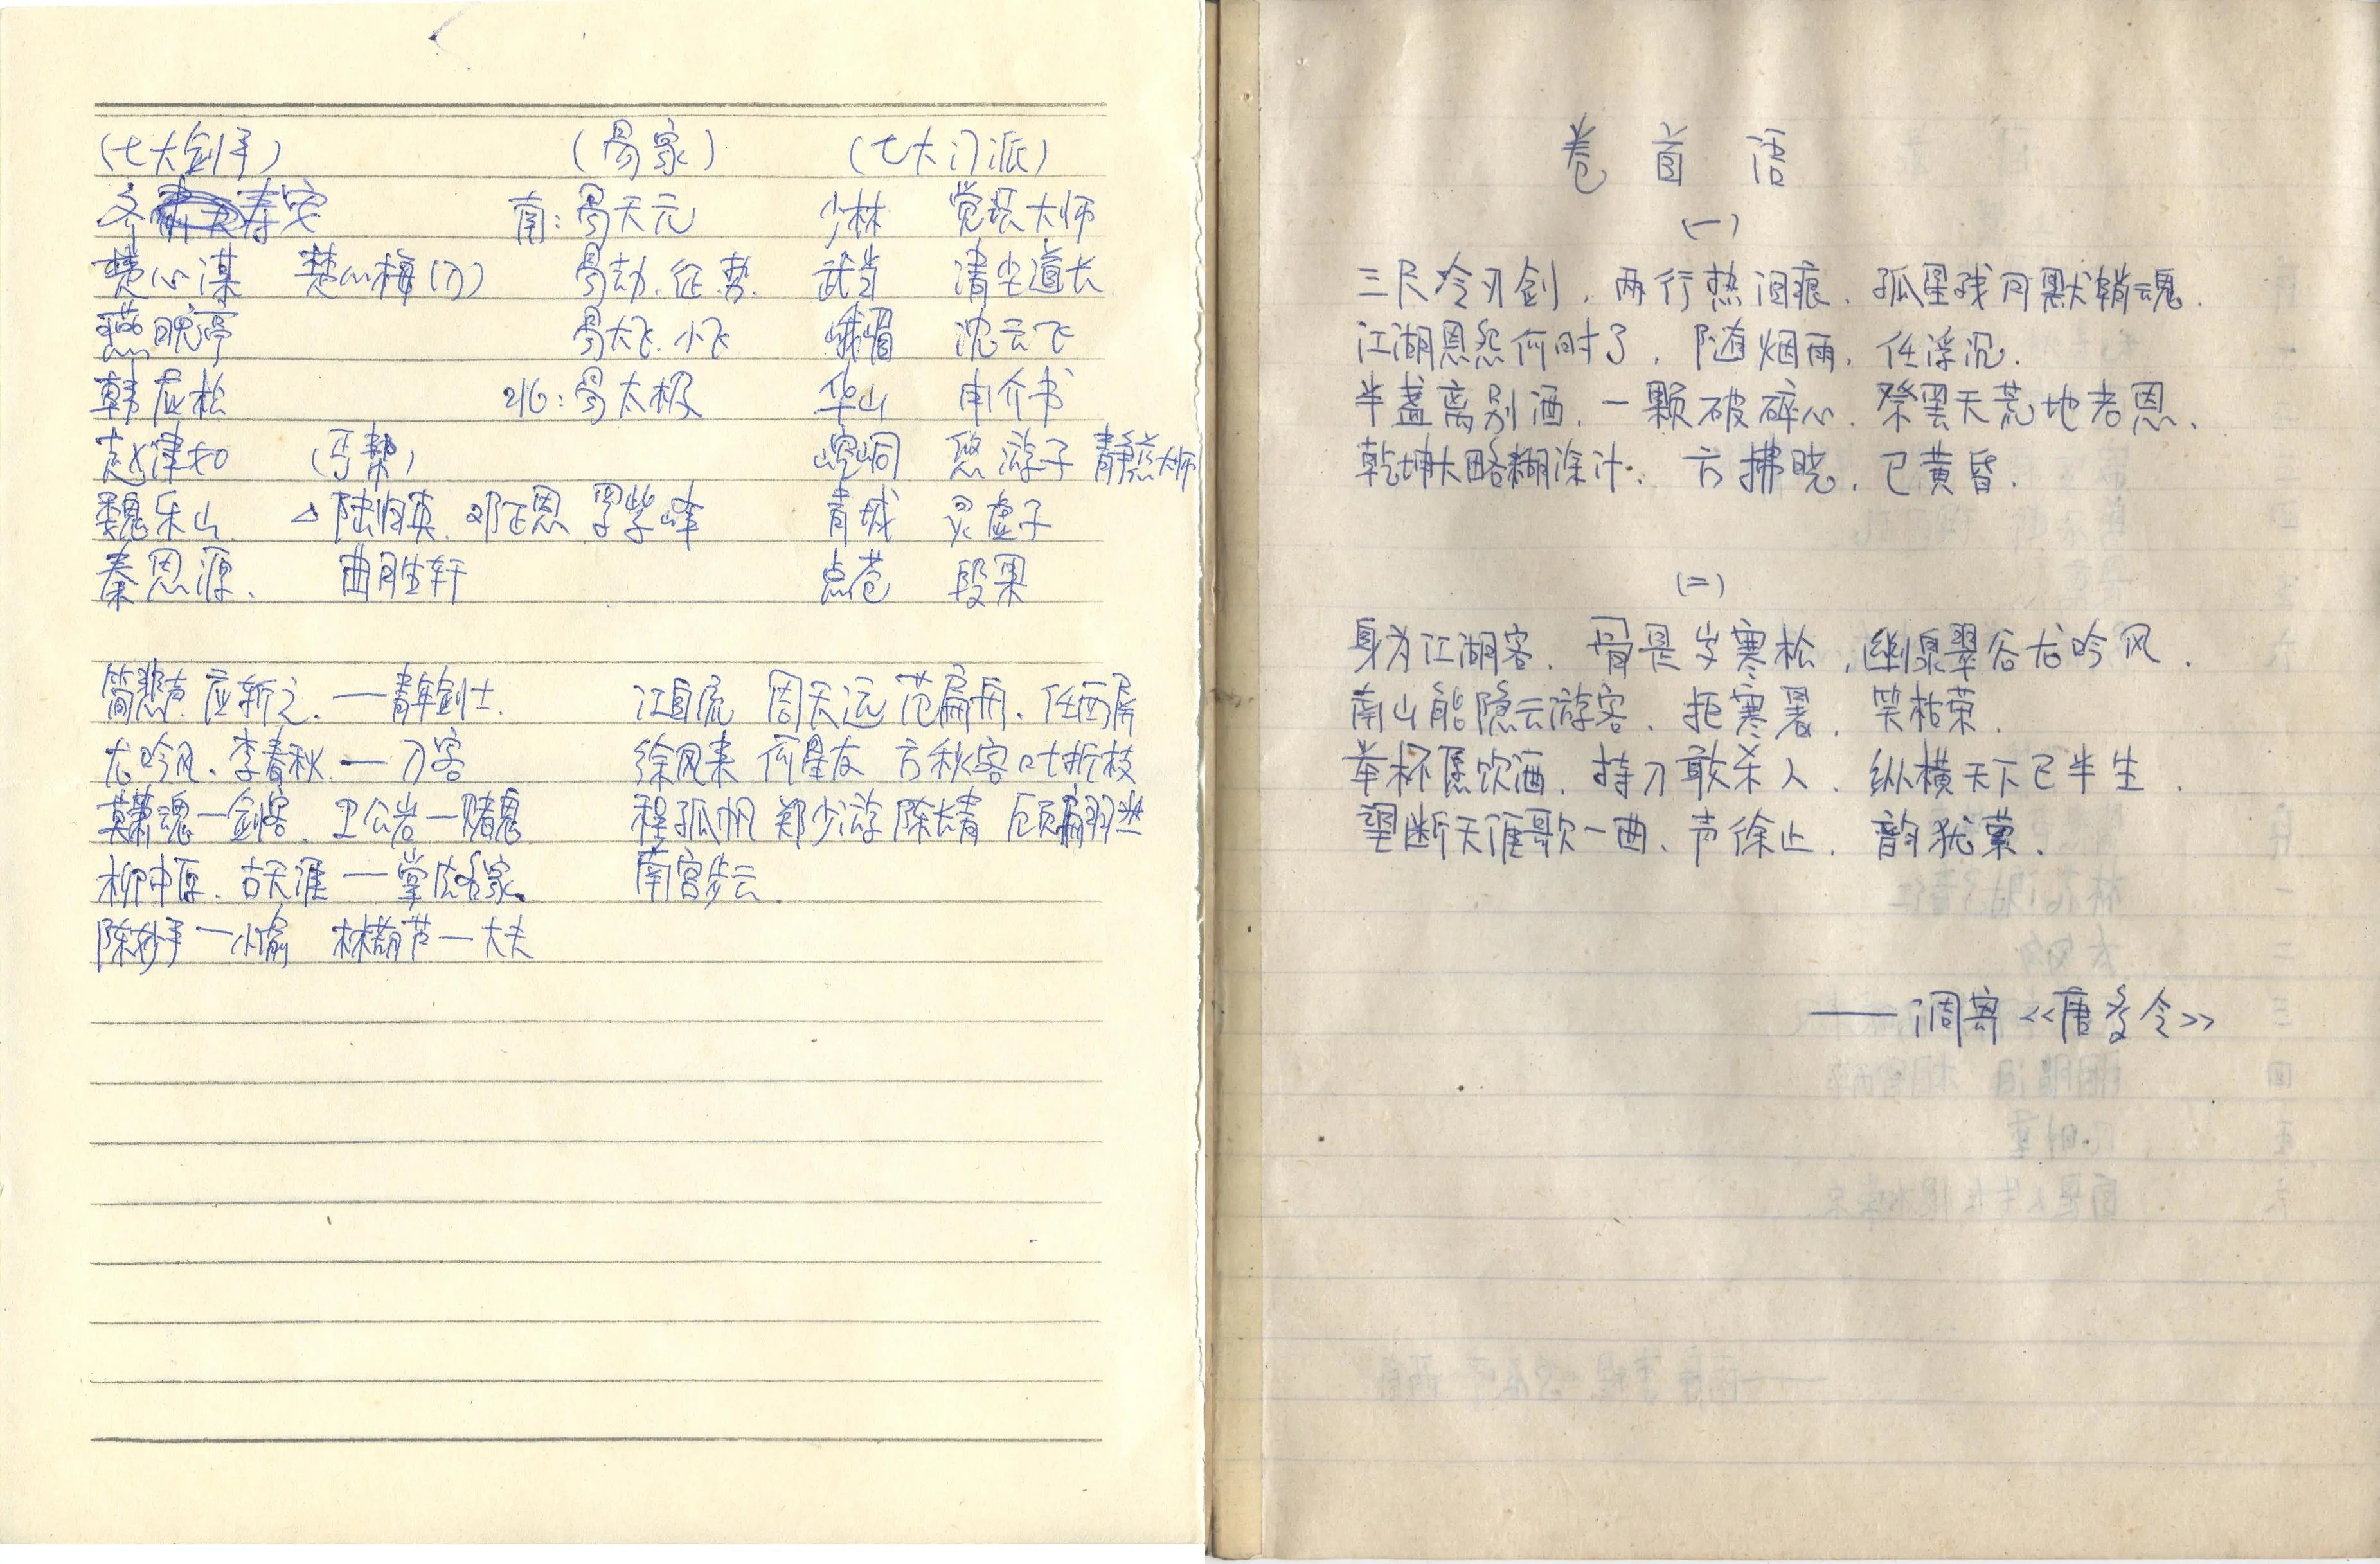 (七大剑手) (易家) (七大门派)
齐寿安 南:易天元 少林 觉 大师
楚心谋 楚心梅(刀) 易劫.征.势. 武当 清尘道长
燕晚亭 易大飞.小飞 峨嵋 沈云飞
韩应松 北:易太极 华山 申介书
赵津如 (丐帮) 崆峒 悠游子 静慈大师
魏乐山 △陆归英.邓正恩 罗紫峰 青城 灵虚子
秦恩源、 曲胜轩 点苍 段果
简悲声.应斩之.—青年剑士. 江自流 周天远 范扁舟.任西屏
龙吟风.李春秋.—刀客 徐风来 何星友 方秋客 叶折枝
莫萧魂—剑客.卫公岩—赌鬼 程孤帆 郑少游 陈长青 顾翩翩
柳中原.古天涯—掌法名家. 南宫步云.
陈妙手—小偷 林葫芦—大夫
卷首语
(一)
三尺冷刃剑,两行热泪痕.孤星残月默销魂.
江湖恩怨何时了,随烟雨,任浮沉.
半盏离别酒,一颗破碎心.祭罢天荒地老恩.
乾坤大略糊涂计.方拂晓,已黄昏.
(二)
身为江湖客.骨是岁寒松,幽泉翠谷龙吟风.
南山能隐云游客.拒寒暑,笑枯荣.
举杯愿饮酒.持刀敢杀人.纵横天下已半生.
望断天涯歌一曲、声徐止.韵犹萦.
——调寄《唐多令》